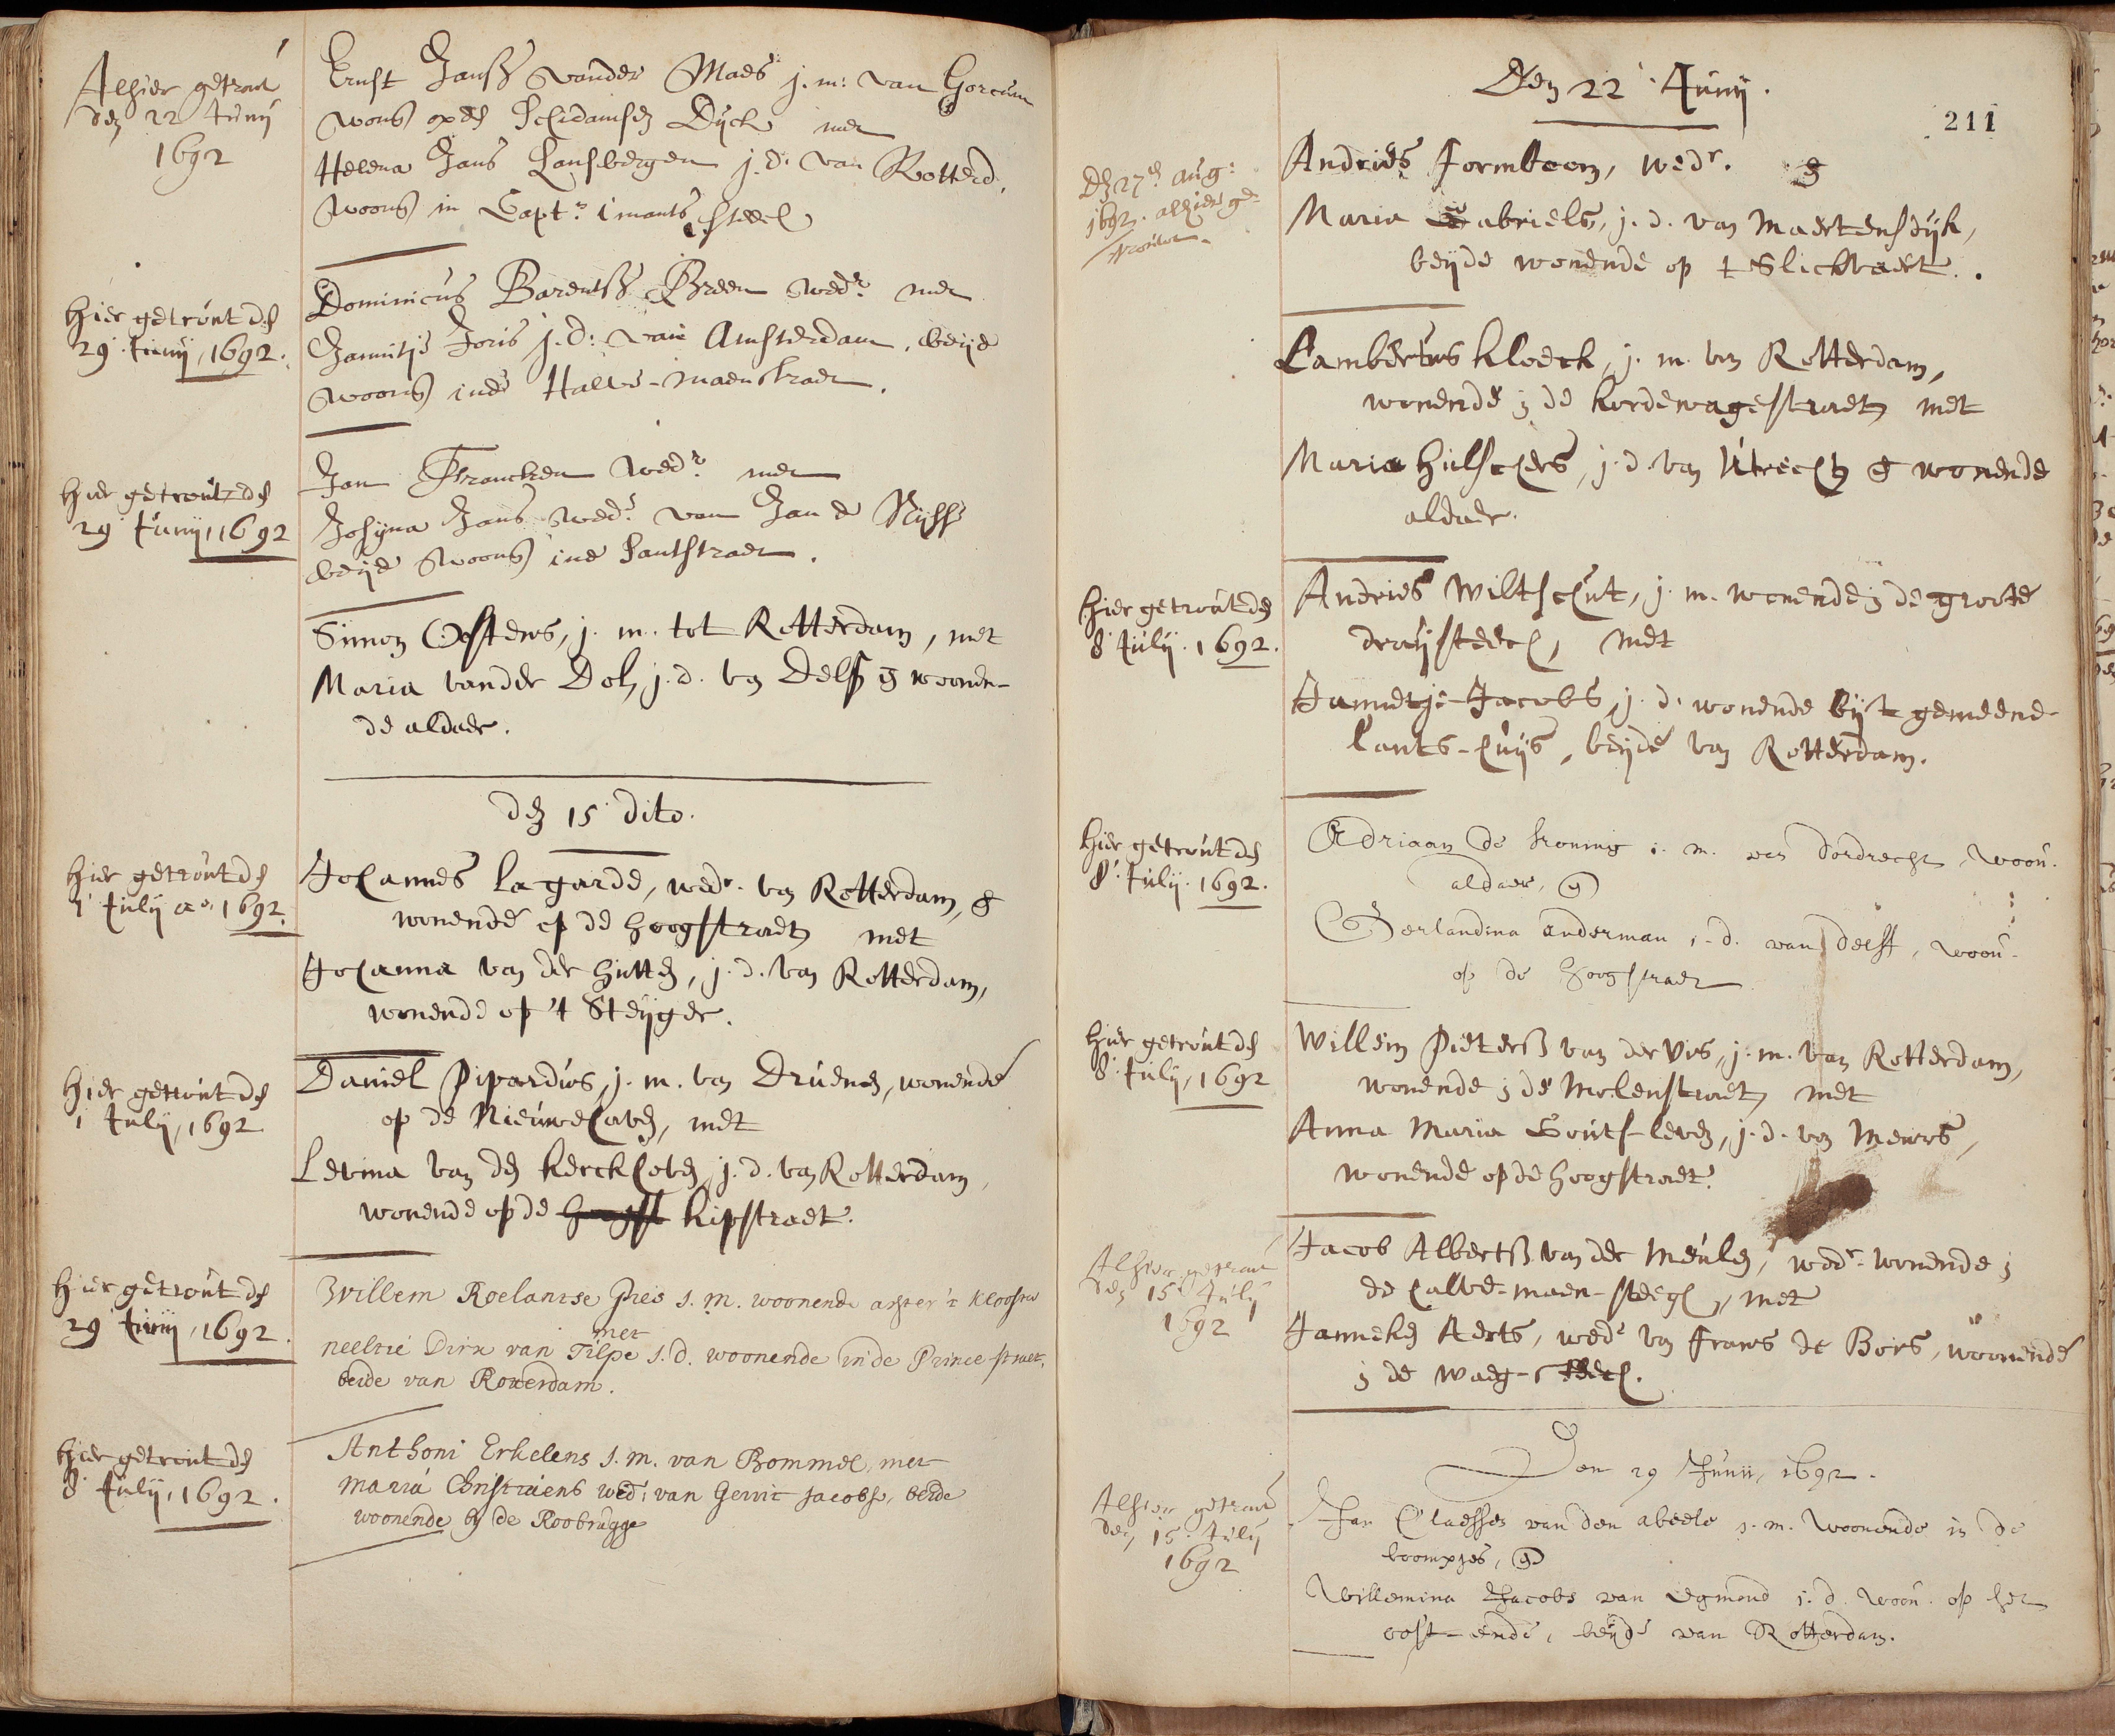 Alhier getrout
den 22 Junij
1692
Ernst Jansz vander Maes j.m: van Gorcum
woon. op den Schidamsen Dijck met
Helena Jans Lansbergen j.d. van Rotterd.
woon. in Capt.n imants steech
Hier getrout den
29 Junij, 1692.
Dominicus Barentsz Breen wedr met
Jannitje Joris j.d: van Amsterdam, beijde
woon. inde Halve-maenstraet.
Hier getrout den
29 Junij, 1692
Jan Francken wedr met
Josijna Jans wede van Jan de
beijde woon. inde Lantstraet.
Simon Ostens, j.m. tot Rotterdam, met
Maria vander Dol, j.d. van Delf en woonen-
de aldaer.
den 15 dito.
Hier getrout den
1 Julij ao. 1692.
Johannes Lagarde, wedr. van Rotterdam, &
wonende op de hoogstraet, met
Johanna van der hutten, j.d. van Rotterdam,
wonende op 't Steijger.
Hier getrout den
1 Julij, 1692
Daniel Pipardus, j.m. van Druenen, wonende
op de Nieuwehaven, met
Levina van den kerckhoven, j.d. van Rotterdam,
wonende op de hoogst kipstraet.
Hier getrout den
29 Junij, 1692.
Willem Roelantse Pies j.m. woonende achter 't Klooster
met
neeltie Dirx van Tilpe j.d. woonende in de Prince straet,
beide van Rotterdam.
Hier getrout den
8 Julij, 1692.
Anthoni Erkelens j.m. van Bommel, met
Maria Christiaens wed: van Gerrit Jacobse, beide
woonende bij de Roobrugge
Den 22 Junij.
211
Den 27en Aug:
1692. alhier ge-
trouwt.
Andries Formboom, wedr. &
Maria Gabriels, j.d. van Maertensdijk,
beijde wonende op t Slickvaert.
Lambertus kloeck, j.m. van Rotterdam,
wonende in de kordewagestraet, met
Maria hulschers, j.d. van Utrecht, & wonende
aldaer.
Hier getrout den
8 Julij. 1692.
Andries Wiltschut, j.m. wonende in de groote
draijsteech, met
Jannetje Jacobs, j.d. wonende bij 't gemeene-
lants-huijs, beijde van Rotterdam.
Hier getrout den
8 Julij. 1692.
Adriaan de Koning j.m. van dordrecht, woon.
aldaer, en
Gerlandina anderman j.d. van delft, woon.
op de hoogstraet
Hier getrout den
8 Julij, 1692
Willem Pietersz van der Vos, j.m. van Rotterdam,
wonende in de Molenstraet, met
Anna Maria Gouts-leven, j.d. van Meurs,
wonende op de hoogstraet.
Alhier getraut
den 15 Julij
1692
Jacob Albertsz van der Meulen, wedr. wonende in
de halve-maen-steegh, met
Janneken Aerts, wede van Frans de Bors, woonende
in de waeg-steech.
Den 29 Junii, 1692.
Alhier getraut
den 15 Julij
1692
Jan Claessen van den abeele j.m. woonende in de
boompjes, en
Willemina Jacobs van Egmond j.d. woon. op het
oost-ende, beijde van Rotterdam.